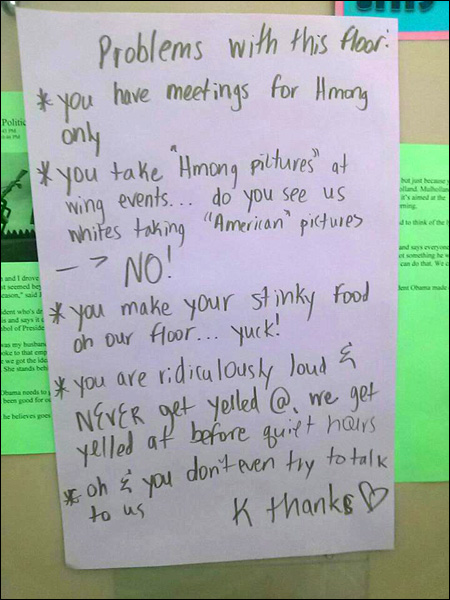 Problems with this floor:
* you have meetings for Hmong
only
* you take "Hmong pictures" at
wing events... do you see us
whites taking "American" pictures
—> NO!
* you make your stinky food
on our floor... yuck!
* you are ridiculously loud &
NEVER get yelled @. we get
yelled at before quiet hours
* oh & you don't even try to talk
to us
K thanks ♡
Politic
41 PM
and I drove
t seemed bey
eason," said
dent who's dr
in and says it g
bol of Presid
was my husban
oke to that emp
we got the ide
She stands behi
Obama needs to
been good for o
he believes goes
but just because y
olland. Mulhollan
it's aimed at the
ming.
d to think of the
and says everyone
ot something he w
can do that. We c
dent Obama made